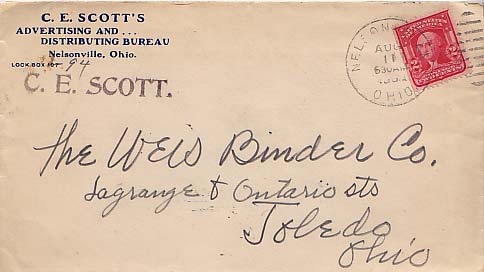 C. E. SCOTT'S
ADVERTISING AND ...
DISTRIBUTING BUREAU
Nelsonville, Ohio.
LOCK BOX 94
C. E. SCOTT.
AUG
11
630AM
OHIO
The Weis Binder Co.
Lagrange & Ontario sts
Toledo
Ohio